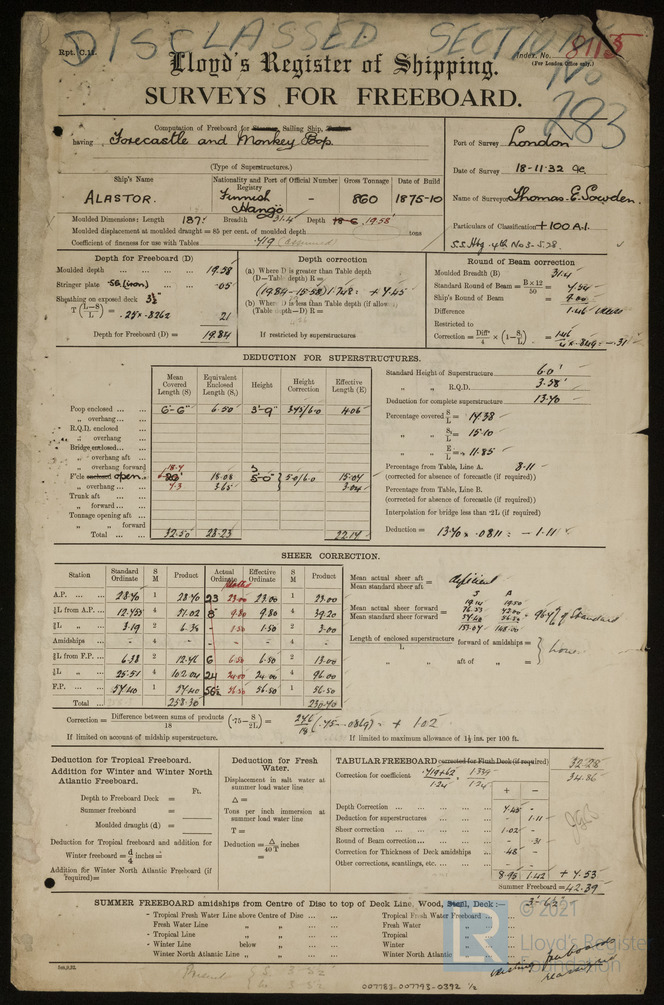 DISCLASSED SECTION
No 283
Rpt. C.11.
Index. No. 8115
(For London Office only.)
Lloyd's Register of Shipping.
SURVEYS FOR FREEBOARD.
Computation of Freeboard for Steamer, Sailing Ship, Tanker
having Forecastle and Monkey Poop.
(Type of Superstructures.)
Port of Survey London
Date of Survey 18-11-32
Name of Surveyor Thomas E. Sowden.
Particulars of Classification +100 A.1.
S.S. Hbg. 4th No 3-5.28.
Ship's Name
Nationality and Port of Registry
Official Number
Gross Tonnage
Date of Build
ALASTOR.
Finnish
Hangö
-
860
1875-10
Moulded Dimensions: Length 187' Breadth 31.4 Depth 18.6 19.58
Moulded displacement at moulded draught = 85 per cent. of moulded depth tons
Coefficient of fineness for use with Tables .719 (assumed)
Depth for Freeboard (D)
Moulded depth ... 19.58
Stringer plate .05
Sheathing on exposed deck 3½"
T (L-S/L) = .25 × .8262 .21
Depth for Freeboard (D) = 19.84
Depth correction
(a) Where D is greater than Table depth
(D—Table depth) R =
(19.84-15.58) 1.748 = + 7.45
(b) Where D is less than Table depth (if allowed)
(Table depth—D) R =
If restricted by superstructures
Round of Beam correction
Moulded Breadth (B) 31.4
Standard Round of Beam = B×12/50 = 7.54
Ship's Round of Beam = 9.00
Difference 1.46
Restricted to
Correction = Diff/4 × (1-S₁/L) = 1.46/4 × .849 = -.31
DEDUCTION FOR SUPERSTRUCTURES.
Mean Covered Length (S)
Equivalent Enclosed Length (S₁)
Height
Height Correction
Effective Length (E)
Poop enclosed ... 6'-6" 6.50 3'-9" 3.75/6.0 4.06
„ overhang ...
R.Q.D. enclosed
„ overhang
Bridge enclosed...
„ overhang aft
„ overhang forward
F'cle enclosed open 18.7 18.08 5'-0" 5.0/6.0 15.07
„ overhang ... 7.3 3.65 3.04
Trunk aft ...
„ forward...
Tonnage opening aft ...
„ „ forward
Total ... 32.50 28.23 22.17
Standard Height of Superstructure 6.0'
„ „ R.Q.D. 3.58'
Deduction for complete superstructure 13.70
Percentage covered S/L = 17.38
„ „ S₁/L = 15.10
„ „ E/L = 11.85
Percentage from Table, Line A. 8.11
(corrected for absence of forecastle (if required))
Percentage from Table, Line B.
(corrected for absence of forecastle (if required))
Interpolation for bridge less than ·2L (if required)
Deduction = 13.70 × .0811 = - 1.11
SHEER CORRECTION.
Station
Standard Ordinate
S M
Product
Actual Ordinate
Effective Ordinate
S M
Product
A.P. ... 28.70 1 28.70 23 23.00 23.00 1 23.00
⅙L from A.P. ... 12.755 4 51.02 8 9.80 9.80 4 39.20
⅓L „ 3.19 2 6.38 - 1.50 1.50 2 3.00
Amidships - 4 - - - 4 -
⅓L from F.P. ... 6.38 2 12.76 6 6.50 6.50 2 13.00
⅙L „ 25.51 4 102.04 24 24.00 24.00 4 96.00
F.P. ... 57.40 1 57.40 56½ 56.50 56.50 1 56.50
Total ... 258.30 230.70
Mean actual sheer aft / Mean standard sheer aft = deficient
Mean actual sheer forward / Mean standard sheer forward = 96.7% of Standard
Length of enclosed superstructure / L forward of amidships =
„ „ aft of „ =
Correction = Difference between sums of products / 18 (·75-S/2L) = 27.6/18 (.75-.0869) = + 1.02
If limited on account of midship superstructure.
If limited to maximum allowance of 1½ ins. per 100 ft.
Deduction for Tropical Freeboard.
Addition for Winter and Winter North Atlantic Freeboard.
Ft.
Depth to Freeboard Deck =
Summer freeboard =
Moulded draught (d) =
Deduction for Tropical freeboard and addition for
Winter freeboard = d/4 inches =
Addition for Winter North Atlantic Freeboard (if required)=
Deduction for Fresh Water.
Displacement in salt water at summer load water line
Δ =
Tons per inch immersion at summer load water line
T =
Deduction = Δ/40 T inches
=
TABULAR FREEBOARD corrected for Flush Deck (if required) 32.28
Correction for coefficient .719+.62/1.24 = 1.339/1.24 34.86
+ -
Depth Correction ... 7.45 -
Deduction for superstructures ... - 1.11
Sheer correction ... 1.02 -
Round of Beam correction ... - .31
Correction for Thickness of Deck amidships ... .48 -
Other corrections, scantlings, etc. ... - -
8.95 1.42 + 7.53
Summer Freeboard = 42.39
SUMMER FREEBOARD amidships from Centre of Disc to top of Deck Line, Wood, Steel, Deck:— 3'-6½"
Tropical Fresh Water Line above Centre of Disc ...
Fresh Water Line „ „
Tropical Line „ „
Winter Line below „
Winter North Atlantic Line „ „
Tropical Fresh Water Freeboard
Fresh Water „
Tropical „
Winter „
Winter North Atlantic „
existing freeboards
reassigned
Present
007783-007793-0392 ½
© 2021
Lloyd's Register
Foundation
LR